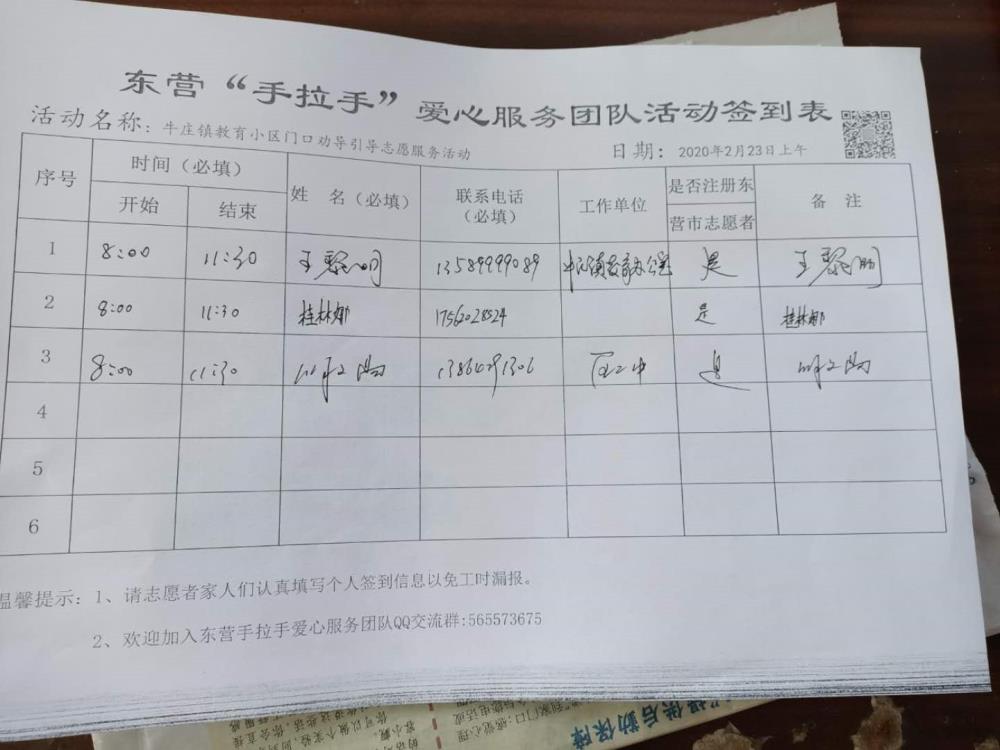 东营“手拉手”爱心服务团队活动签到表
活动名称：牛庄镇教育小区门口劝导引导志愿服务活动 日期：2020年2月23日上午
序号 时间（必填） 姓 名（必填） 联系电话（必填） 工作单位 是否注册东营市志愿者 备 注
开始 结束
1 8:00 11:30 王黎明 13589999089 是 王黎明
2 8:00 11:30 桂林娜 1756028524 是 桂林娜
3 8:00 11:30 是
4
5
6
温馨提示：1、请志愿者家人们认真填写个人签到信息以免工时漏报。
2、欢迎加入东营手拉手爱心服务团队QQ交流群:565573675
提供后勤保障